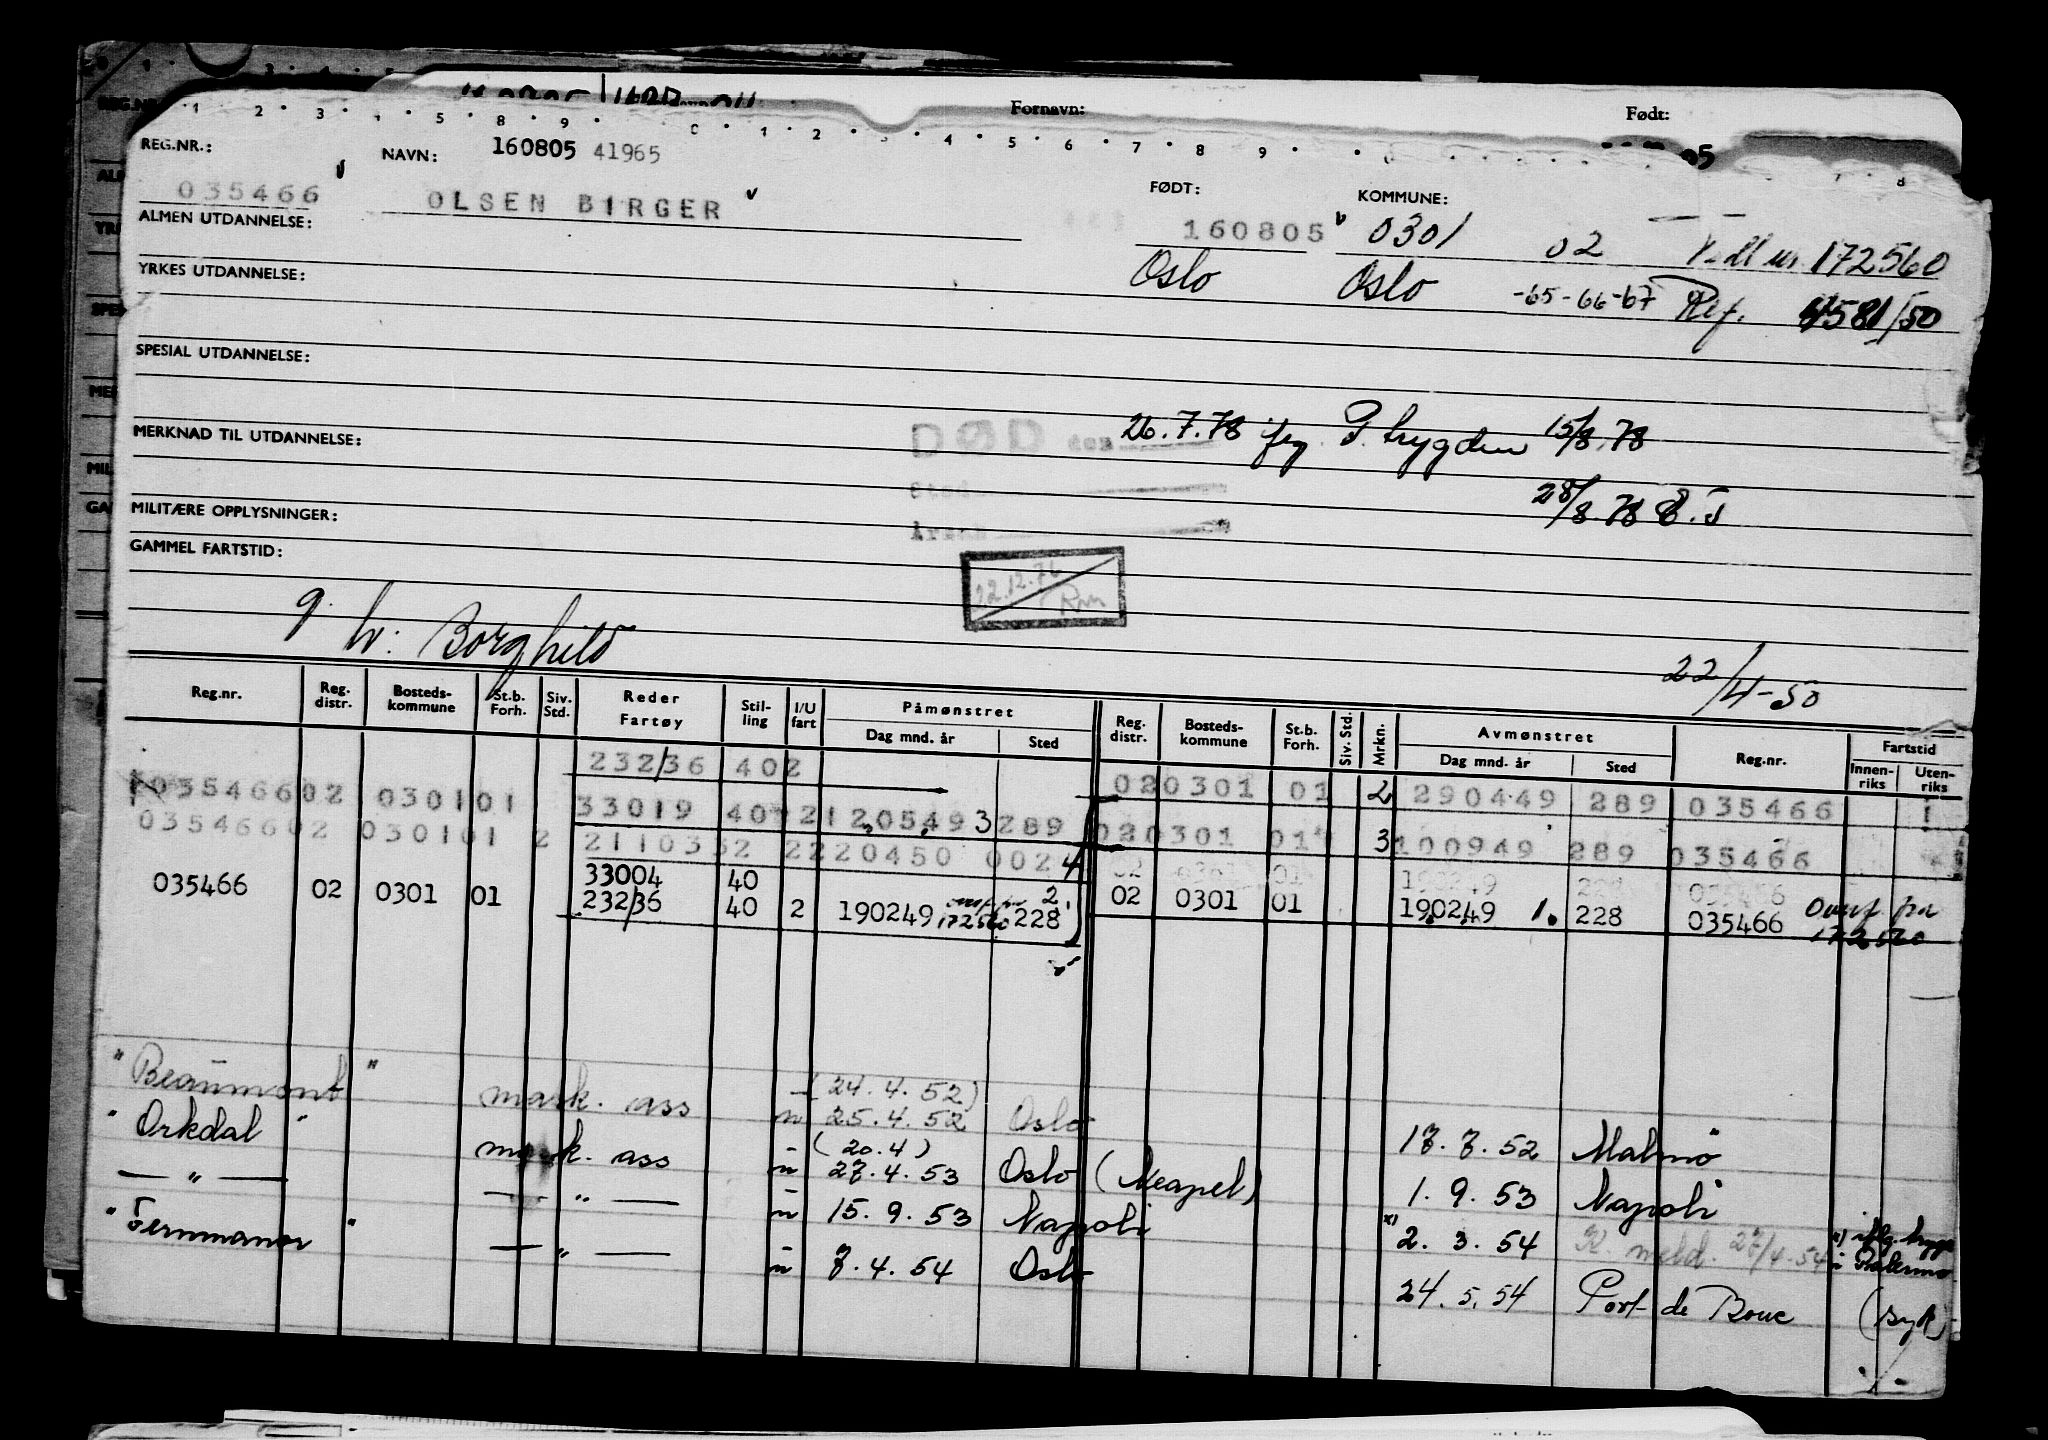 Fornavn: Født:
REG.NR.: NAVN: 160805 41965 FØDT: KOMMUNE:
035466 OLSEN BIRGER 160805 0301 02 172560
ALMEN UTDANNELSE: Oslo Oslo -65-66-67 Ref. 4581/50
YRKES UTDANNELSE:
SPESIAL UTDANNELSE:
DØD den 26.7.78 P. trygden 15/8.78
MERKNAD TIL UTDANNELSE:
Sted
28/8.78
MILITÆRE OPPLYSNINGER:
Årsak
GAMMEL FARTSTID:
22.12.76
g. h: Borghild
22/4-50
Reg.nr. Reg. distr. Bosteds-kommune St.b. Forh. Siv. Std. Reder Fartøy Stil-ling I/U fart Påmønstret Dag mnd. år Sted Reg. distr. Bosteds-kommune St.b. Forh. Siv. Std. Mrkn. Avmønstret Dag mnd. år Sted Reg.nr. Fartstid Innen-riks Uten-riks
232/36 402
03546602 030101 33019 40 2120549 3 289 020301 01 2 290449 289 035466
03546602 030101 2 2110332 2220450 002 4 020301 01 3 100949 289 035466
33004 40 02 0301 01 190249 228 035466
035466 02 0301 01 232/36 40 2 190249 172560 2. 228 02 0301 01 190249 1. 228 035466 Overf fra 172560
"Beaumont" mask. ass (24.4.52)
ü 25.4.52 Oslo 17.7.52 Malmø
"Orkdal" mask. ass (20.4)
ü 27.4.53 Oslo (Neapel) 1.9.53 Napoli
— " — — " — ü 15.9.53 Napoli x) 2.3.54 K. meld. 27/4.54 x) iflg. i Palermo
"Fernmanor" — " — ü 7.4.54 Oslo 24.5.54 Port de Bouc (syk)